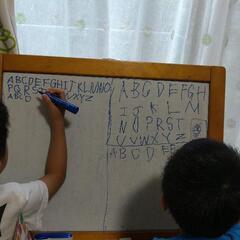 ABCDEFGHIJKLMNO
PQRS
ABCD
WXYZ
ABCDEFGH
IJKLM
NOPRST
UVWXYZ
ABCDEF